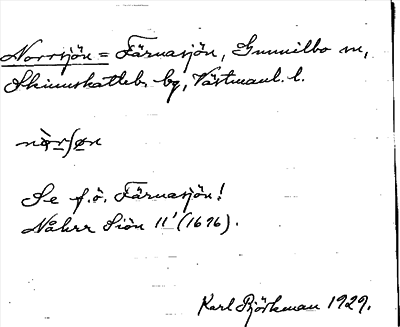 Norrsjön = Färnasjön, Gunnilbo sn,
Skinnskatteb. bg, Västmanl. l.
nòrſøn
Se f.ö. Färnasjön!
Nåhrr Siön 11' (1696).
Karl Björkman 1929.